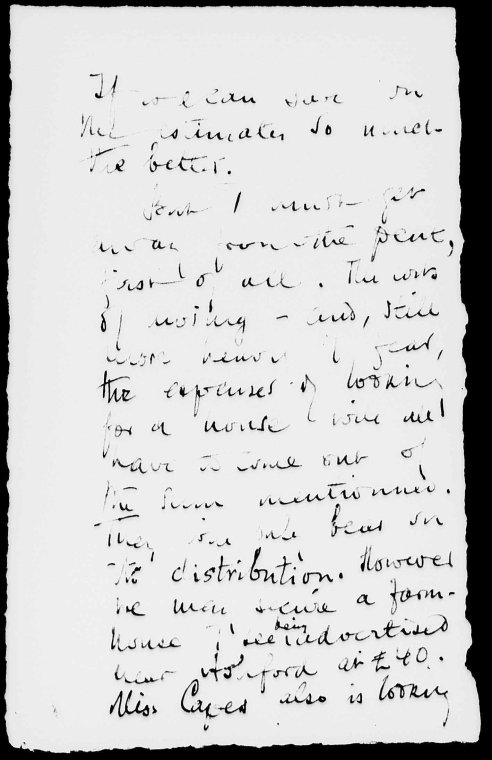 If we can save on
the estimates so much
the better.
But I must get
away from the Pent,
first of all. The costs
of moving - and, still
more heavy I fear,
the expenses of looking
for a house will all
have to come out of
the sum mentioned.
They will bear on
the distribution. However
we may secure a farm-
house I see being advertised
near Ashford at £40.
Miss Capes also is looking